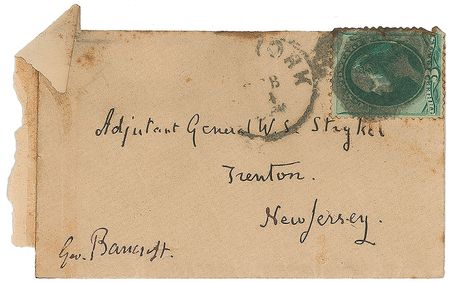 YORK
Adjutant General W. S. Stryker
Trenton.
New Jersey.
Geo. Bancroft.